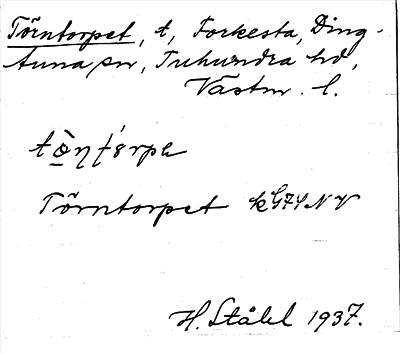 Törntorpet, t, Forkesta, Ding-
tuna sn, Tuhundra hd,
Västm. l.
Törntorpet kG74NV
H. Ståhl 1937.